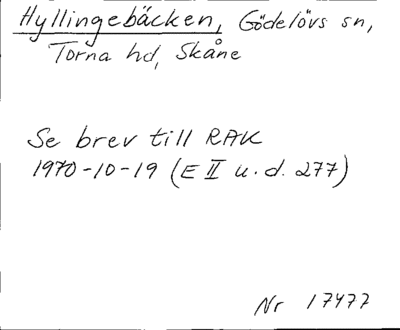 Hyllingebäcken, Gödelövs sn,
Torna hd, Skåne
Se brev till RAK
1970-10-19 (E II u.d. 277)
Nr 17477